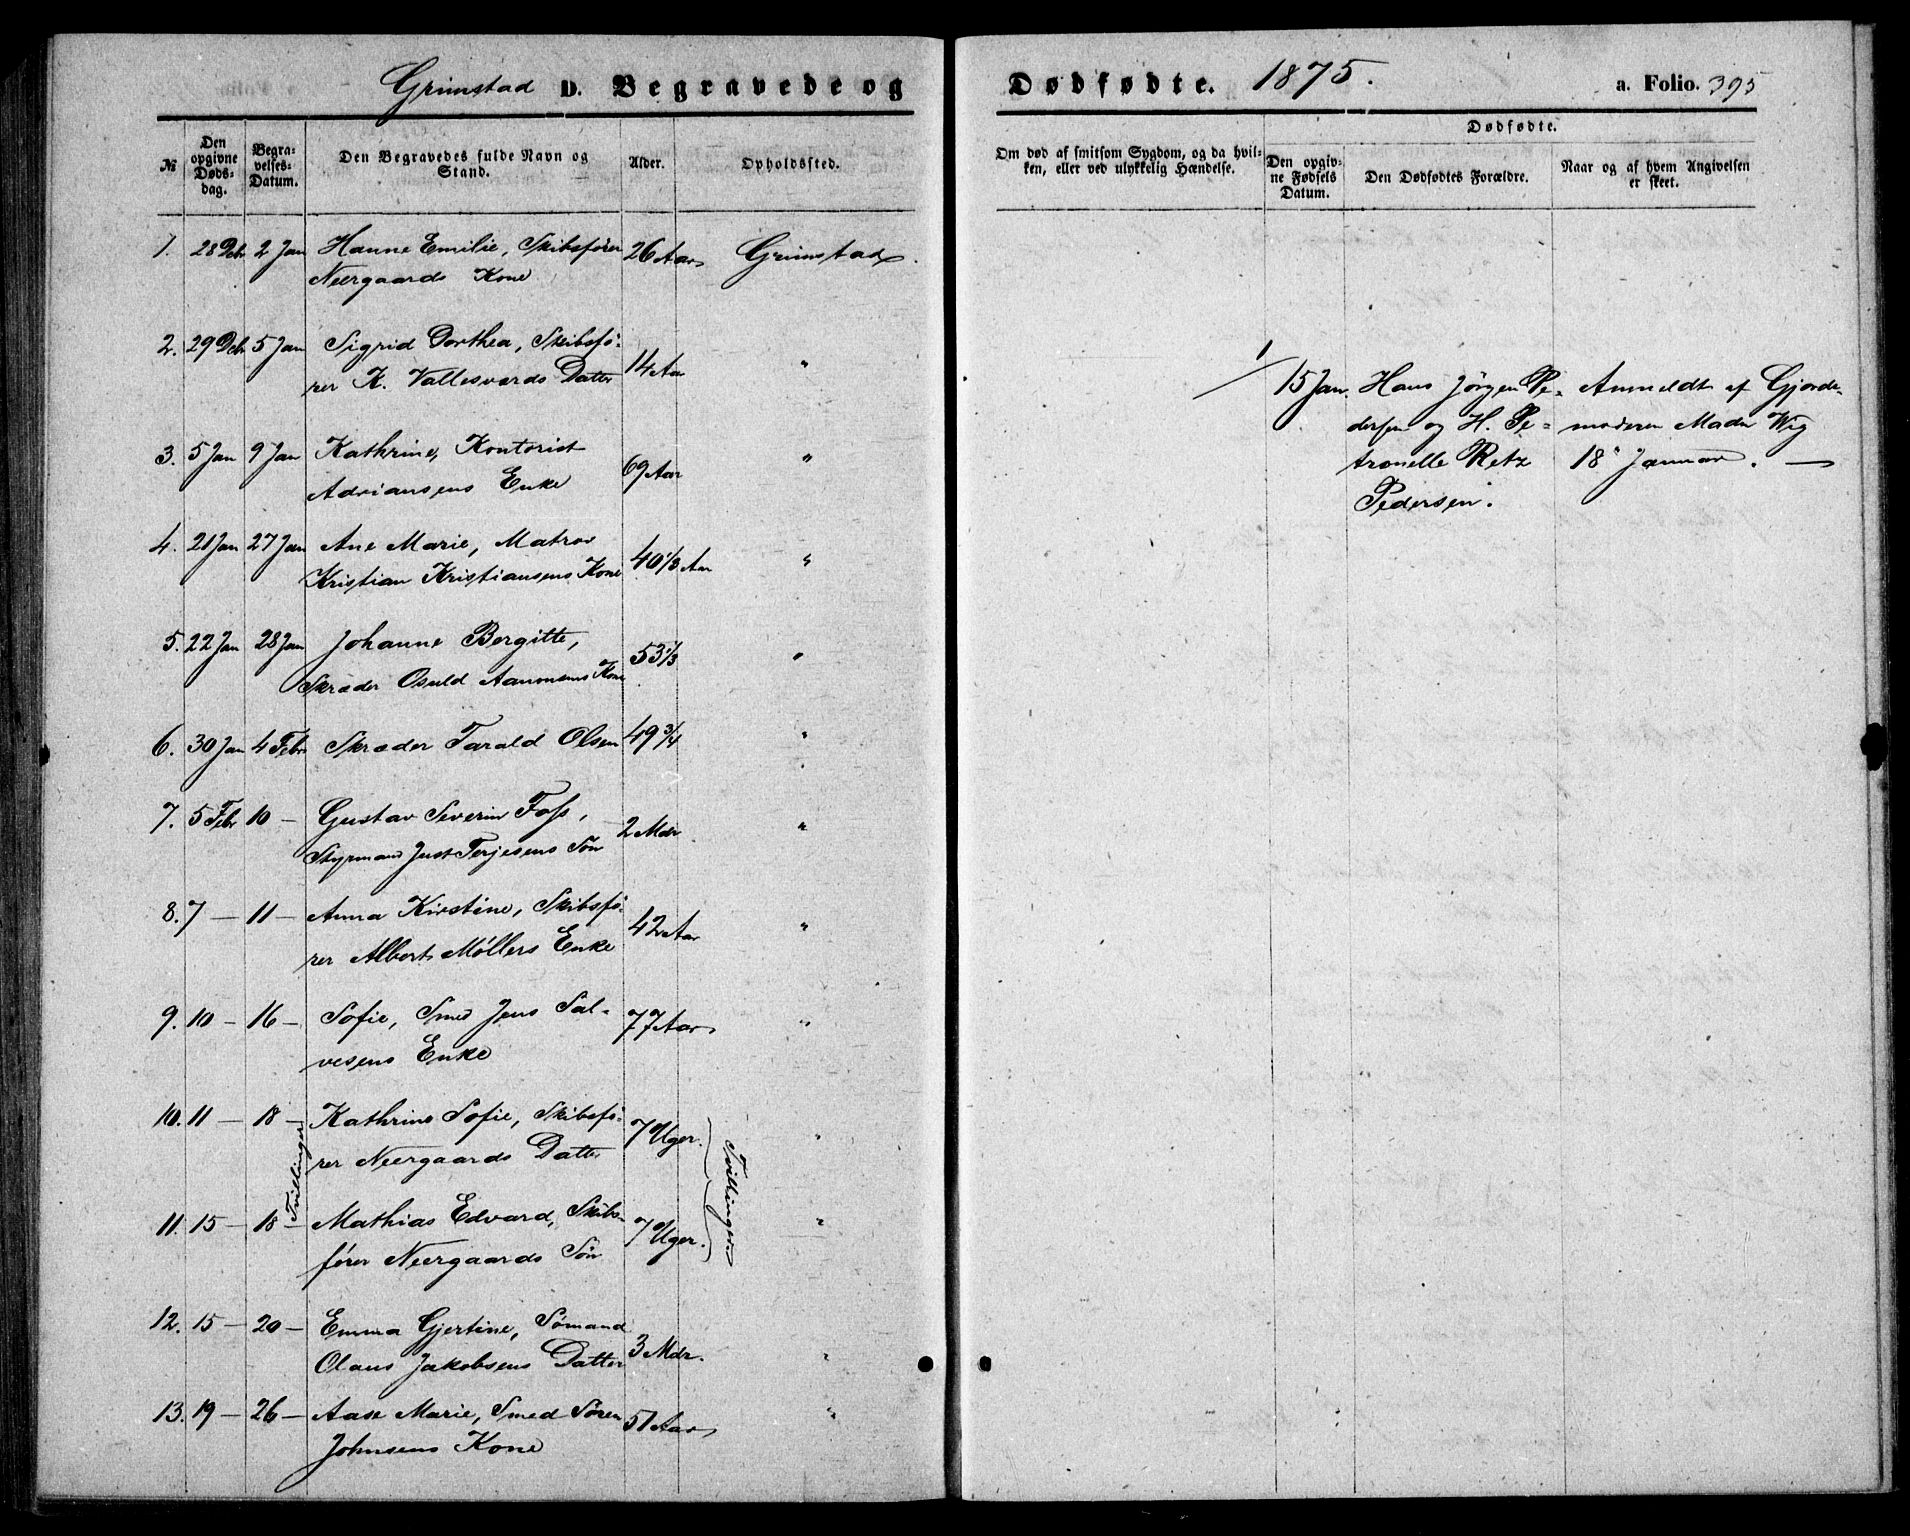 Grimstad D. Begravede og
№
Den opgivne Døds-dag.
Begra-velses-Datum.
Den Begravedes fulde Navn og Stand.
Alder.
Opholdssted.
1. 28 Debr 2 Jan Hanne Emilie, Skibsfører 26 Aar Grimstad.
Neergaards Kone
2. 29 Debr 5 Jan Sigrid Dorthea, Skibsfø-
rer K. Vallesværds Datter 14 Aar "
3. 5 Jan 9 Jan Kathrine, Kontorist
Adriansens Enke 69 Aar "
4. 21 Jan 27 Jan Ane Marie, Matros
Kristian Kristiansens Kone 40 1/3 Aar "
5. 22 Jan 28 Jan Johanne Bergitte,
Skræder Osuld Aanonsens Kone 53 1/3 "
6. 30 Jan 4 Febr Skræder Tarald Olsen 49 3/4 "
7. 5 Febr 10 — Gustav Severin Foss,
Styrmand Just Terjesens Søn 2 Mdr "
8. 7 — 11 — Anna Kirstine, Skibsfø-
rer Albert Møllers Enke 42 Aar "
9. 10 — 16 — Sofie, Smed Jens Sal-
vesens Enke 77 Aar "
10. 11 — 18 — Kathrine Sofie, Skibsfø-
rer Neergaards Datter 7 Uger. "
Tvillinger
Tvillinger
11. 15 — 18 — Mathias Edvard, Skibs-
fører Neergaards Søn 7 Uger. "
12. 15 — 20 — Emma Gjertine, Sømand
Olaus Jakobsens Datter 3 Mdr. "
13. 19 — 26 — Aase Marie, Smed Søren
Johnsens Kone 51 Aar "
Dødfødte. 1875. a. Folio. 395
Om død af smitsom Sygdom, og da hvil-
ken, eller ved ulykkelig Hændelse.
Dødfødte.
Den opgiv-
ne Fødsels
Datum.
Den Dødfødtes Forældre.
Naar og af hvem Angivelsen
er skeet.
1/ 15 Jan. Hans Jørgen Pe- Anmeldt af Gjorde-
dersen og H. Pe- moderen Madm Wig
tronelle Retz 18 Januar. —
Pedersen.